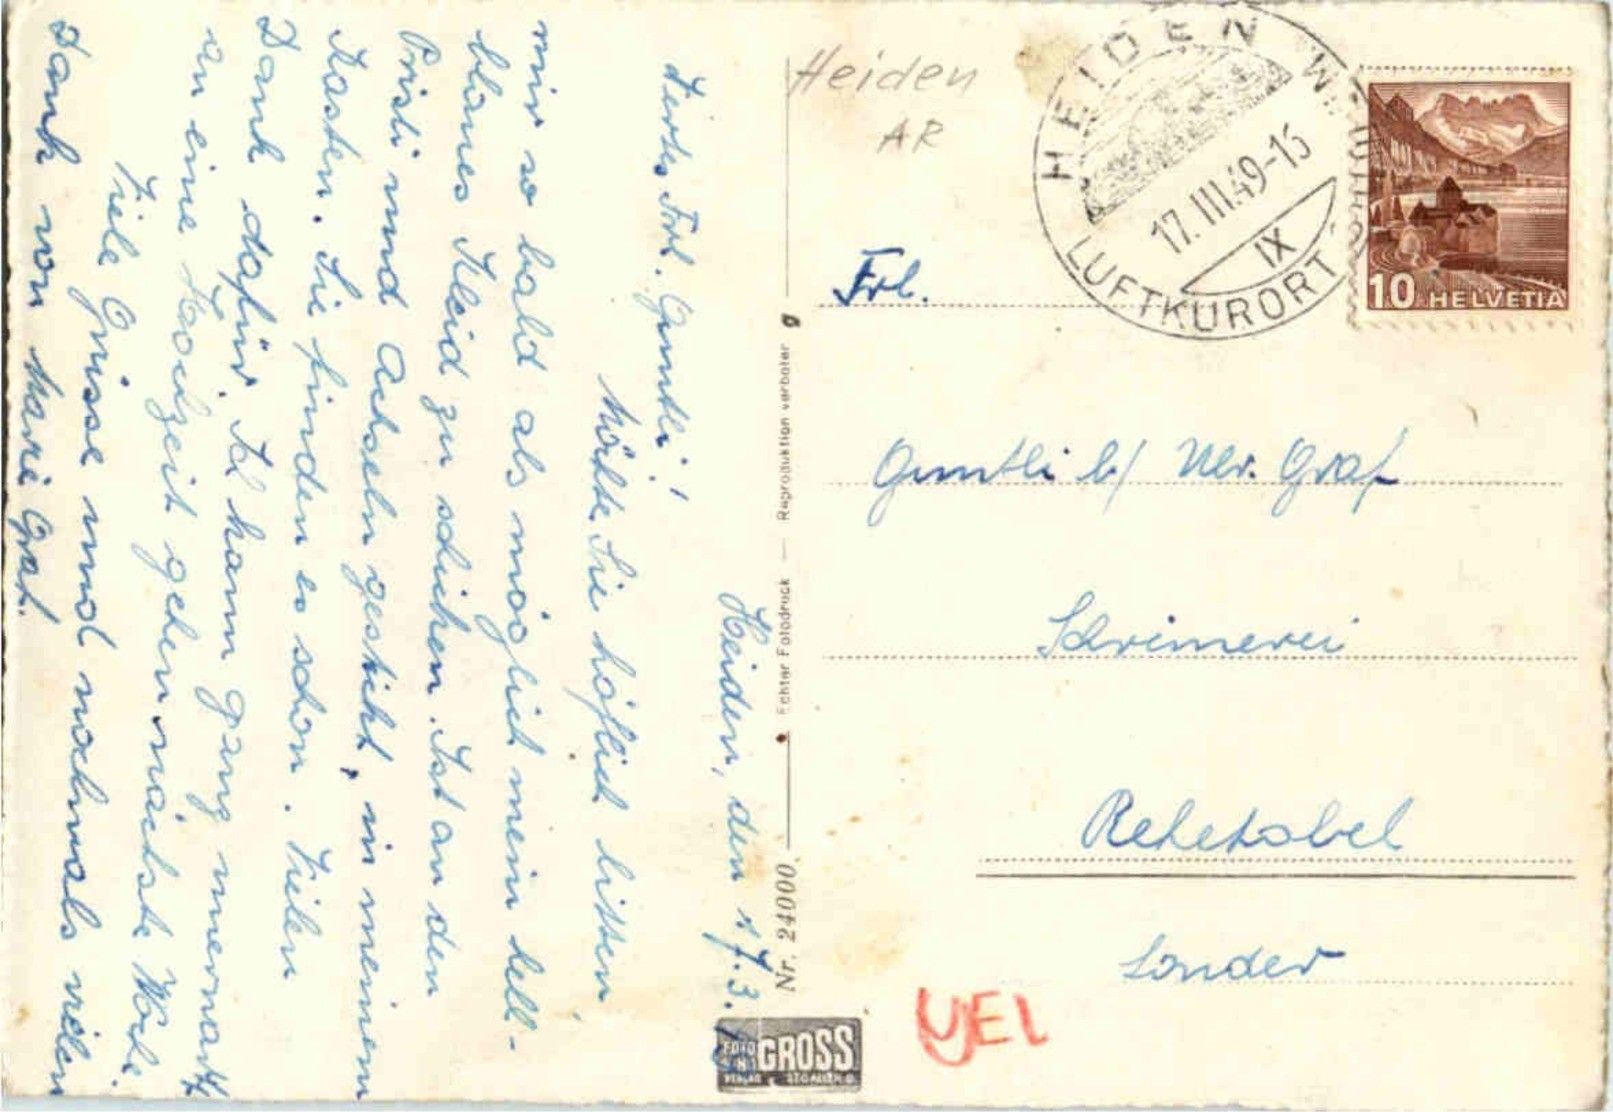 Heiden, den 17.3.
Wertes Frl. Guntli!
Möchte Sie höflich bitten
mir so bald als möglich mein hell-
blaues Kleid zu schicken. Ist an den
Prisli und Achseln gestickt, in meinem
Kasten. Sie finden es schon. Vielen
Dank dafür. Ich kann ganz
an eine Hochzeit gehen nächste Woche.
Viele Grüsse und nochmals vielen
Dank von Marie Graf.
Heiden
AR
HEIDEN
LUFTKURORT
17.III.49-15
IX
10 HELVETIA
Frl.
Guntli b/ Ulr. Graf
Schreinerei
Rehetobel
Sonder
Fehter Fotodruck — Reproduktion verboten
Nr. 24000
FOTO
GROSS
VERLAG ST. GALLEN
UEL